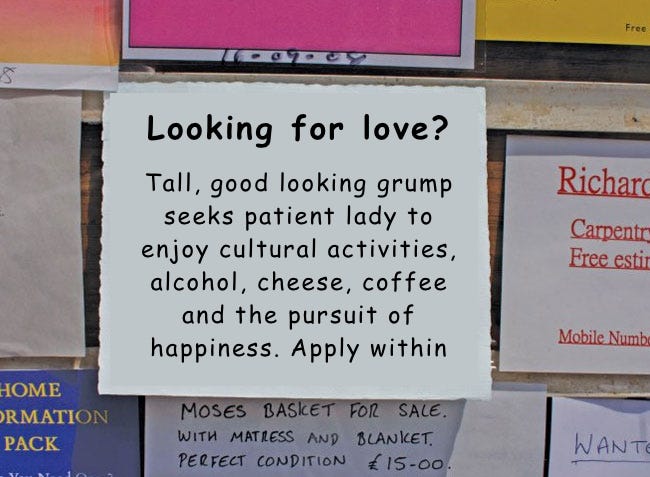 Free
16-09-08
8
Looking for love?
Tall, good looking grump
seeks patient lady to
enjoy cultural activities,
alcohol, cheese, coffee
and the pursuit of
happiness. Apply within
Richard
Carpentry
Free
Mobile
HOME
PACK
MOSES BASKET FOR SALE.
WITH MATRESS AND BLANKET.
PERFECT CONDITION £15-00.